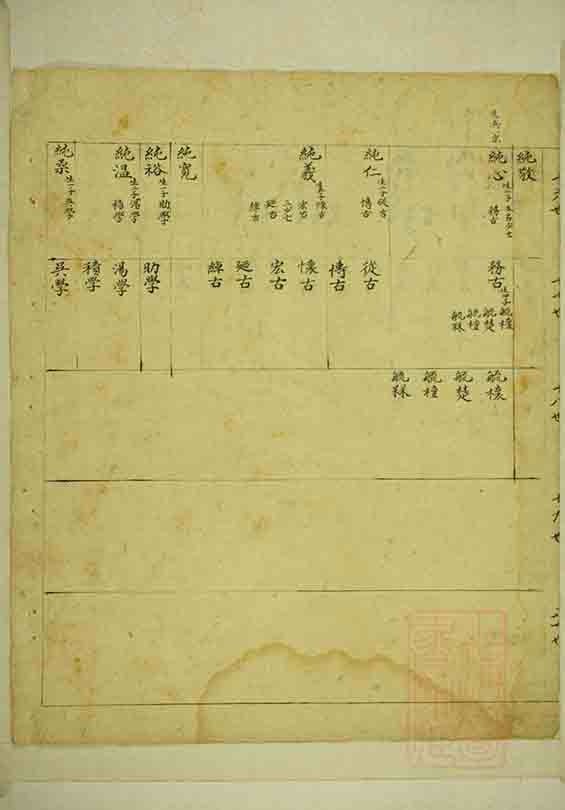 十六世
十七世
十八世
十九世
二十世
純敬
純心
務古
務古
生四子
毓檍
毓楚
毓橦
毓槑
毓檍
毓楚
毓橦
毓槑
純仁
生二子從古
傳古
從古
傳古
純義
生五子懷古
宏古
延古
綿古
懷古
宏古
延古
綿古
純寬
純裕
生一子助學
助學
純溫
生二子湯學
積學
湯學
積學
純桑
生一子吳學
吳學